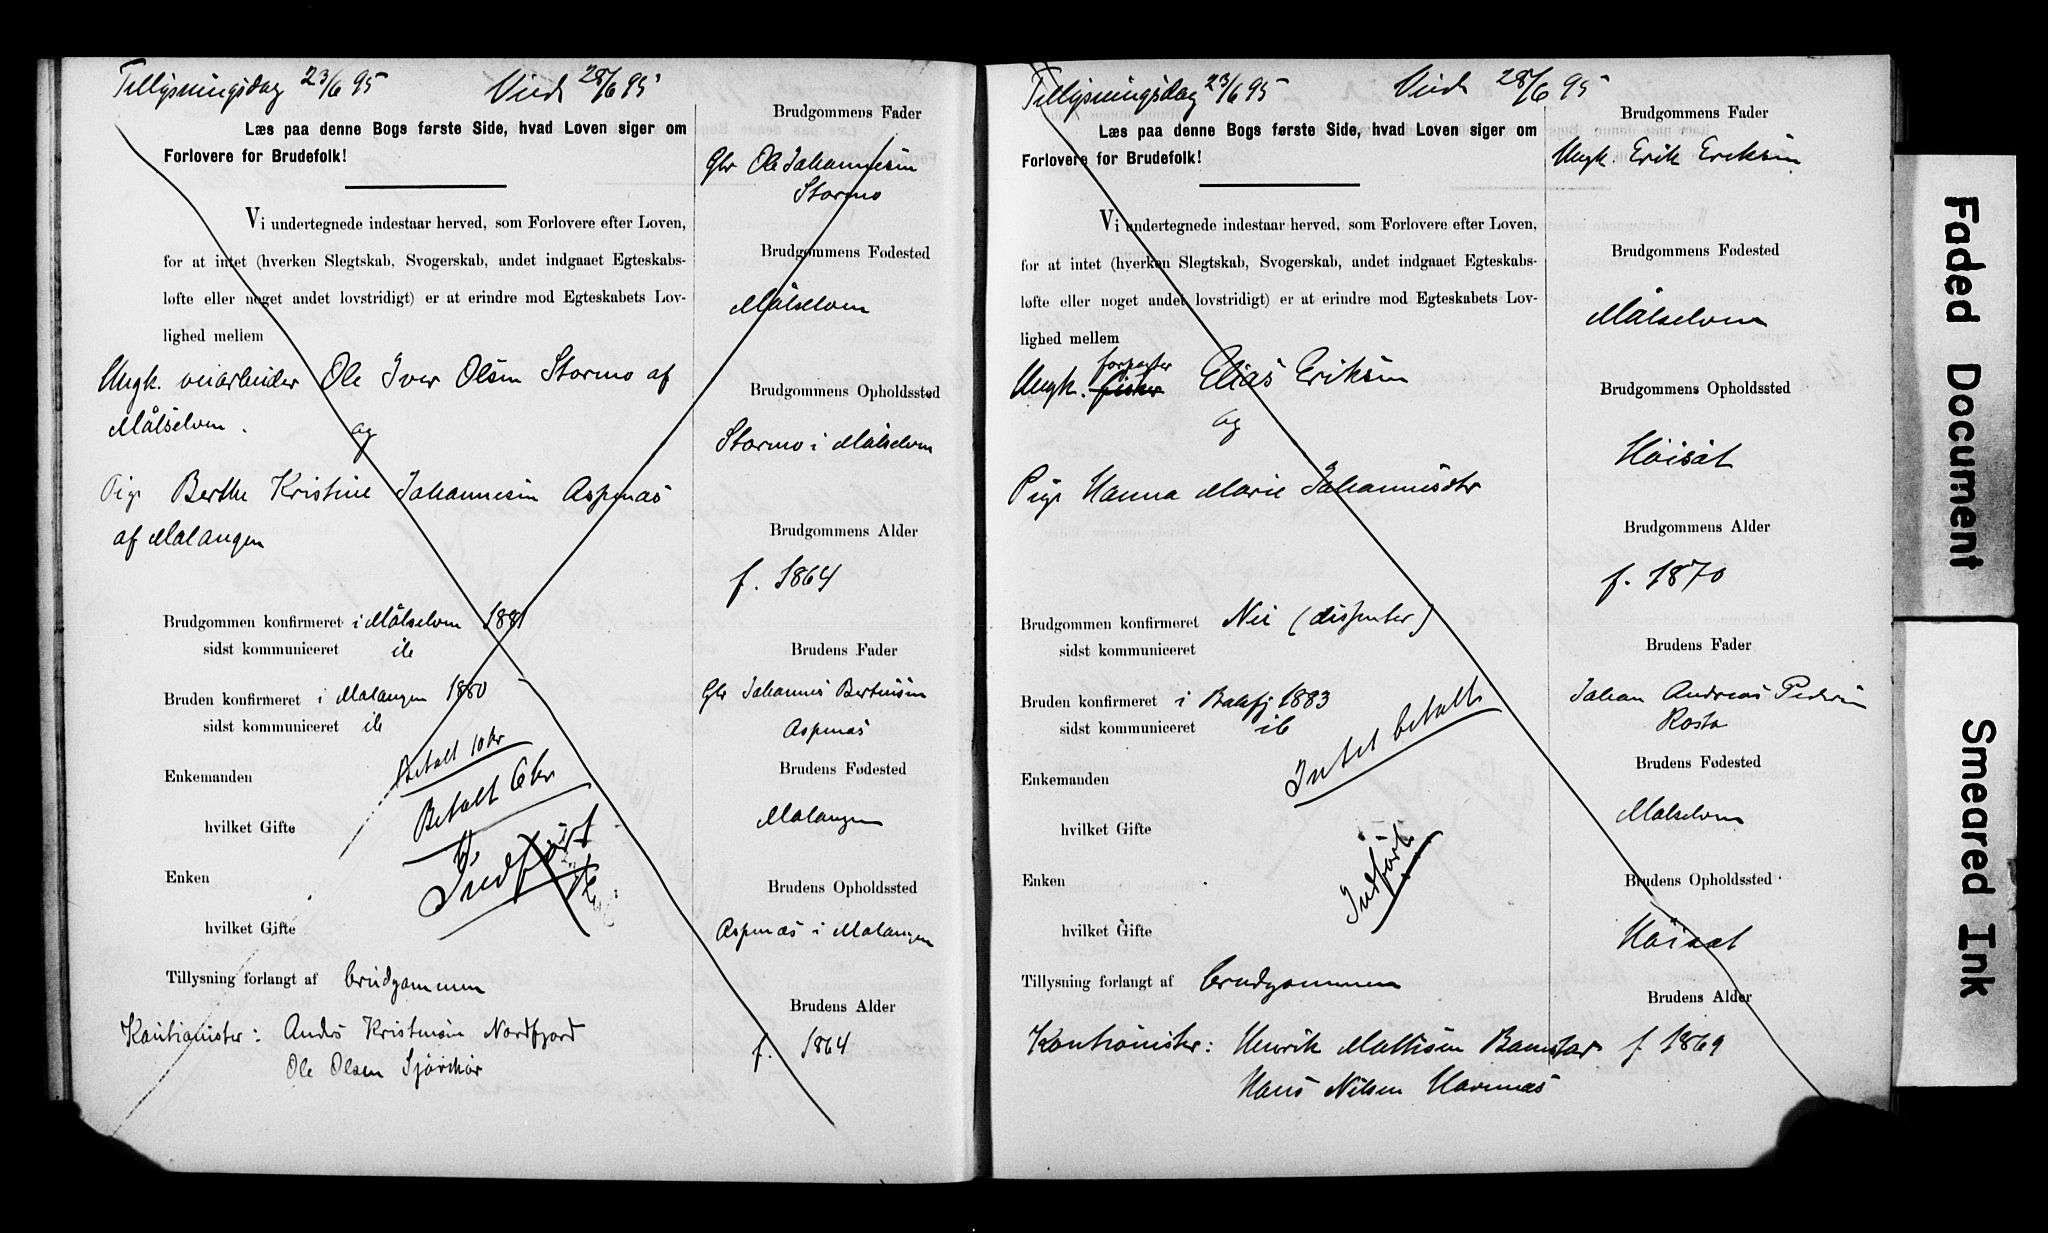 Tillysningsdag 23/6 95 Viet 28/6 95
Læs paa denne Bogs første Side, hvad Loven siger om
Forlovere for Brudefolk!
Vi undertegnede indestaar herved, som Forlovere efter Loven,
for at intet (hverken Slegtskab, Svogerskab, andet indgaaet Egteskabs-
løfte eller noget andet lovstridigt) er at erindre mod Egteskabets Lov-
lighed mellem
Ungk. veiarbeider Ole Iver Olsen Stormo af
Målselven.
og
Pige Berthe Kristine Johannesen Aspenæs
af Malangen
Brudgommen konfirmeret i Målselven 1881
sidst kommuniceret ib
Bruden konfirmeret i Malangen 1880
sidst kommuniceret ib
Betalt 10 kr
Enkemanden
Betalt 6 kr
hvilket Gifte
Indført
Enken
hvilket Gifte
Tillysning forlangt af brudgommen
Kautionister: Anders Kristensen Nordfjord
Ole Olsen
Brudgommens Fader
Gbr Ole Johannesen
Stormo
Brudgommens Fødested
Målselven
Brudgommens Opholdssted
Stormo i Målselven
Brudgommens Alder
f. 1864
Brudens Fader
Gbr Johannes Berthusen
Aspenæs
Brudens Fødested
Malangen
Brudens Opholdssted
Aspenæs i Malangen
Brudens Alder
f. 1864
Tillysningsdag 23/6 95 Viet 28/6 95
Læs paa denne Bogs første Side, hvad Loven siger om
Forlovere for Brudefolk!
Vi undertegnede indestaar herved, som Forlovere efter Loven,
for at intet (hverken Slegtskab, Svogerskab, andet indgaaet Egteskabs-
løfte eller noget andet lovstridigt) er at erindre mod Egteskabets Lov-
lighed mellem
forpagter
Ungk. fisker Elias Eriksen
og
Pige Hanna Marie Johannesdtr
Brudgommen konfirmeret Nei (dispenter)
sidst kommuniceret
Bruden konfirmeret i Balsfj 1883
sidst kommuniceret ib
Intet betalt
Enkemanden
hvilket Gifte
Indført
Enken
hvilket Gifte
Tillysning forlangt af brudgommen
Kautionister: Henrik Mathisen
Hans Nilsen Havnnæs
Brudgommens Fader
Ungk. Erik Eriksen
Brudgommens Fødested
Målselven
Brudgommens Opholdssted
Høisæt
Brudgommens Alder
f. 1870
Brudens Fader
Johan Andreas Pedersen
Rosta
Brudens Fødested
Målselven
Brudens Opholdssted
Høisæt
Brudens Alder
f 1869
Faded Document
Smeared Ink